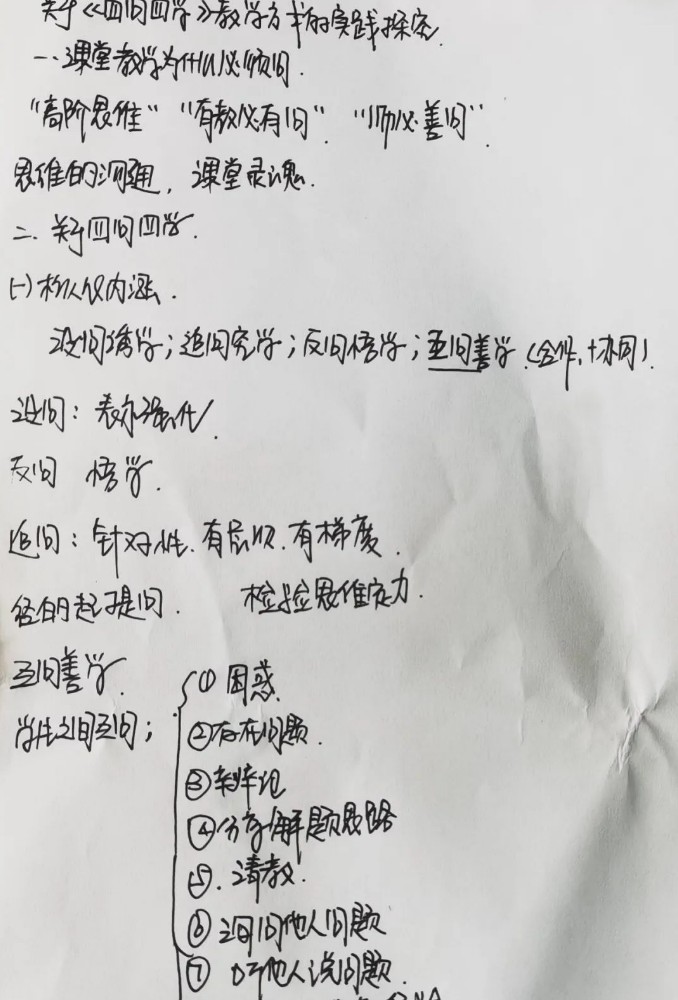 关于《四问四学》教学方式的实践探究
一、课堂教学为什么必须问.
"高阶思维" "有教必有问" "师必善问"
思维的沟通，课堂灵魂.
二. 关于四问四学.
(一)核心仪内涵.
设问诱学；追问究学；反问悟学；互问善学.(合作,+协同).
设问：表示强化.
反问 悟学.
追问：针对性.有层次.有梯度.
经的起提问. 检验思维定力.
互问善学.
学生之间互问；
① 困惑.
②存在问题.
③辩论
④分享解题思路
⑤.请教.
⑥追问他人问题
⑦ 听他人说问题.